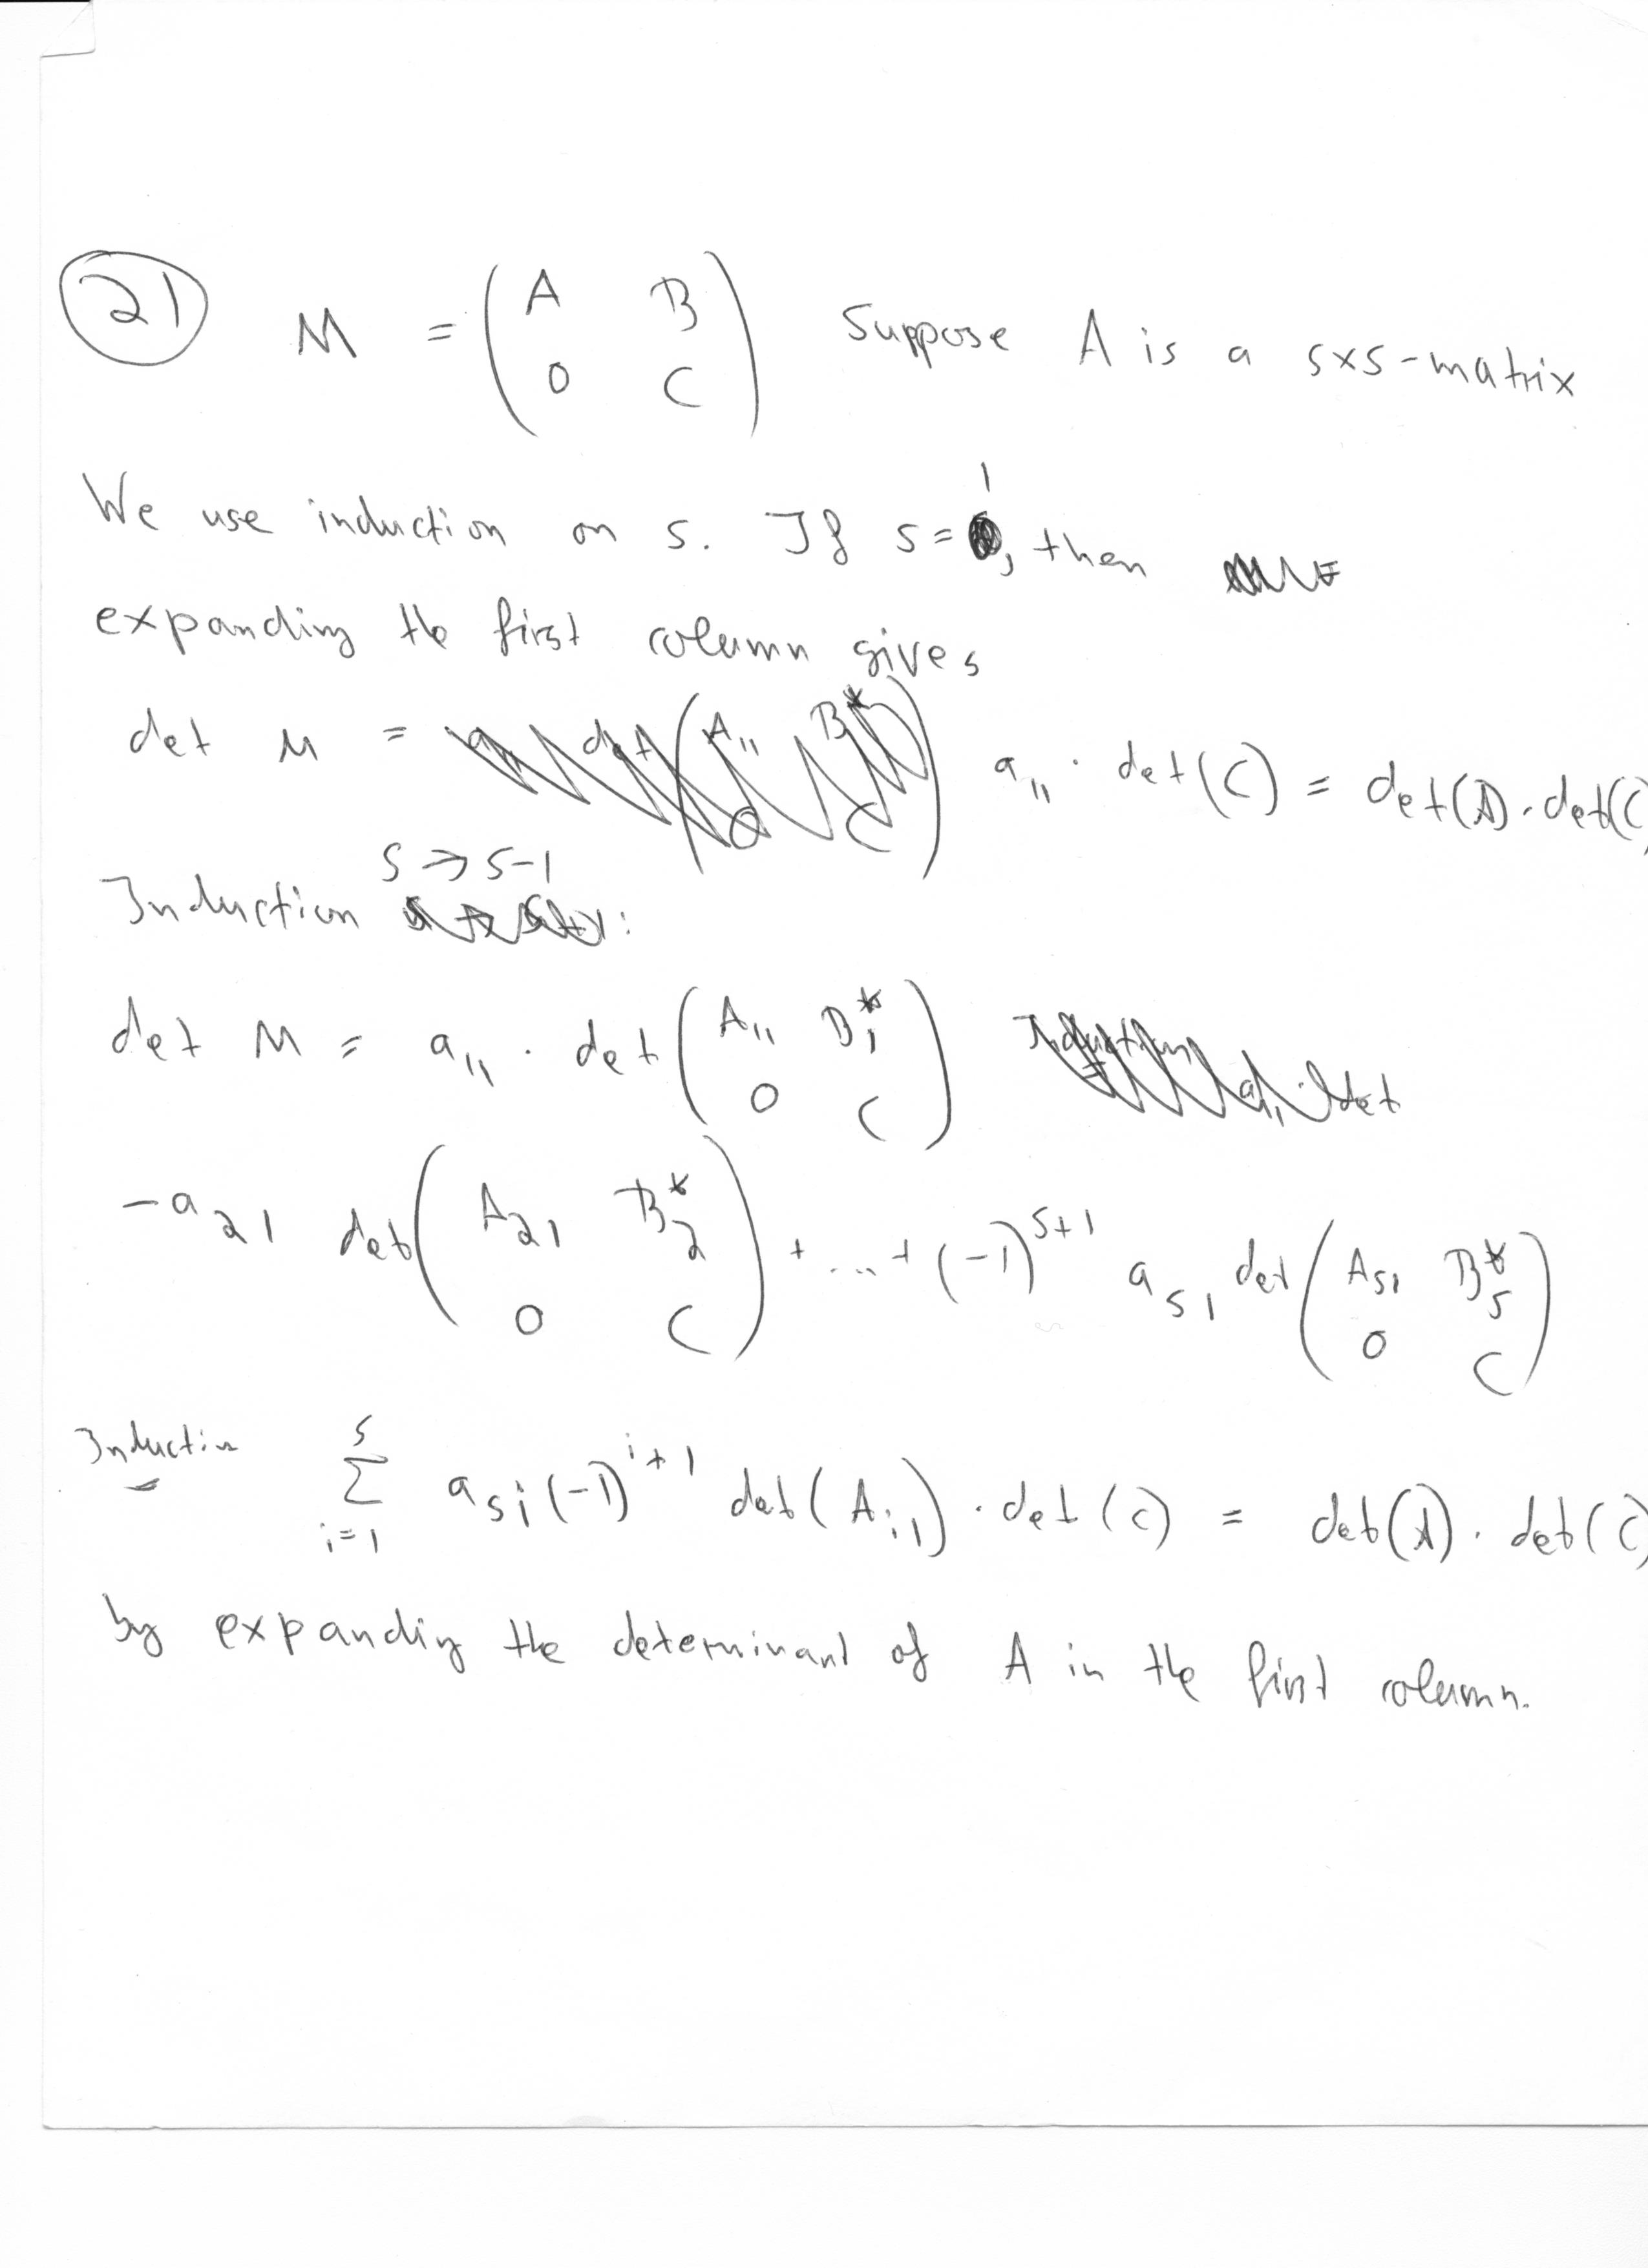 21 M = ( A B 0 C ) Suppose A is a s×s-matrix
We use induction on s. If s = 1, then
expanding the first column gives
det M = a₁₁ · det(C) = det(A) · det(C
s → s-1
Induction :
det M = a₁₁ · det ( A₁₁ B₁* 0 C )
-a₂₁ det ( A₂₁ B₂* 0 C ) + ... + (-1)^{s+1} a_{s1} det ( A_{s1} B_s* 0 C )
Inductin = ∑_{i=1}^{s} a_{si} (-1)^{i+1} det(A_{i1}) · det(C) = det(A) · det(C
by expandig the determinant of A in the first column.